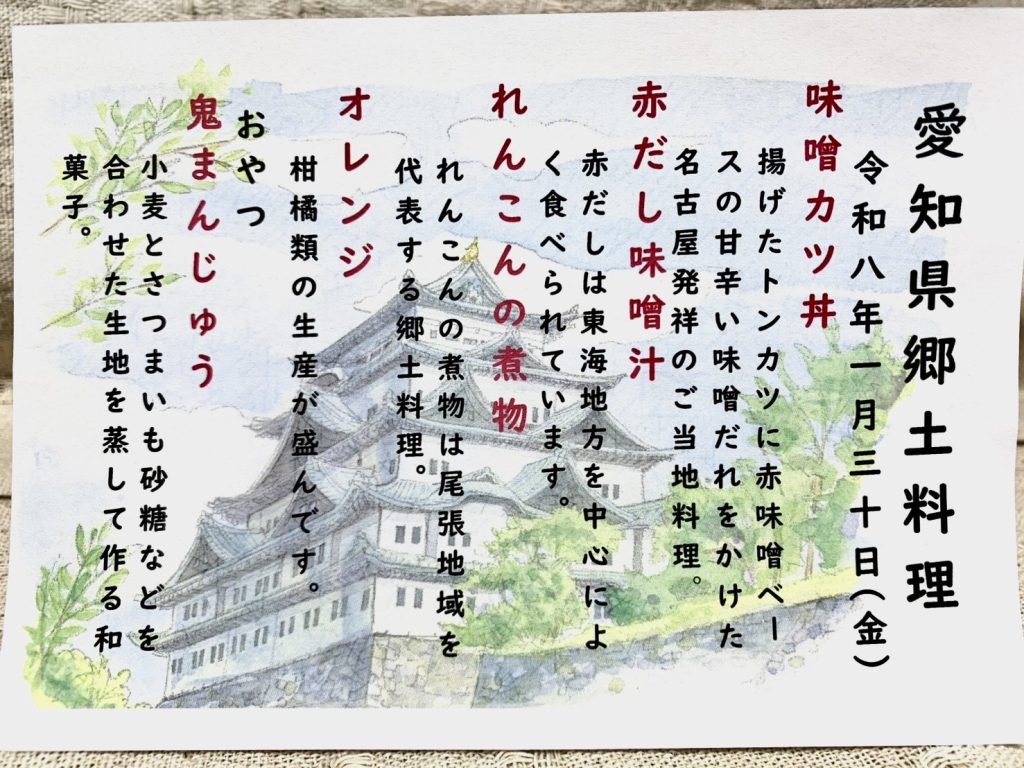 愛知県郷土料理
令和八年一月三十日(金)
味噌カツ丼
揚げたトンカツに赤味噌ベー
スの甘辛い味噌だれをかけた
名古屋発祥のご当地料理。
赤だし味噌汁
赤だしは東海地方を中心によ
く食べられています。
れんこんの煮物
れんこんの煮物は尾張地域を
代表する郷土料理。
オレンジ
柑橘類の生産が盛んです。
おやつ
鬼まんじゅう
小麦とさつまいも砂糖などを
合わせた生地を蒸して作る和
菓子。